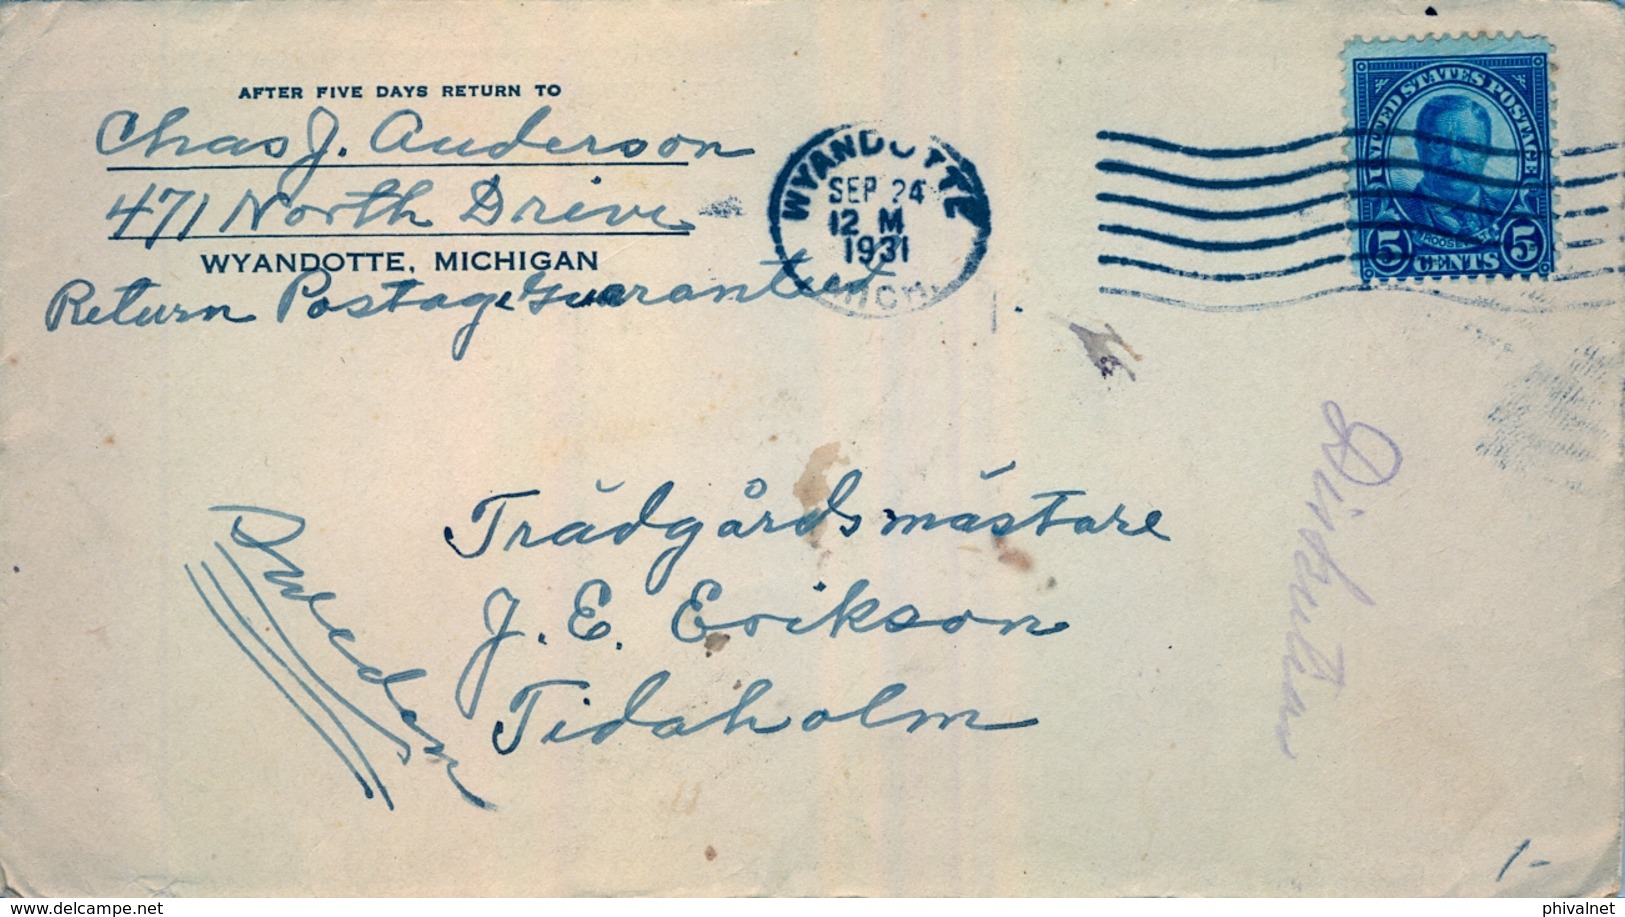 AFTER FIVE DAYS RETURN TO
Chas J. Anderson
471 North Drive
WYANDOTTE, MICHIGAN
Return Postage Guaranteed
WYANDOTTE
SEP 24
12 M
1931
MICH.
UNITED STATES POSTAGE
ROOSEVELT
5 CENTS 5
Trädgårdsmästare
J. E. Erikson
Tidaholm
Sweden
1-
delcampe.net
phivalnet